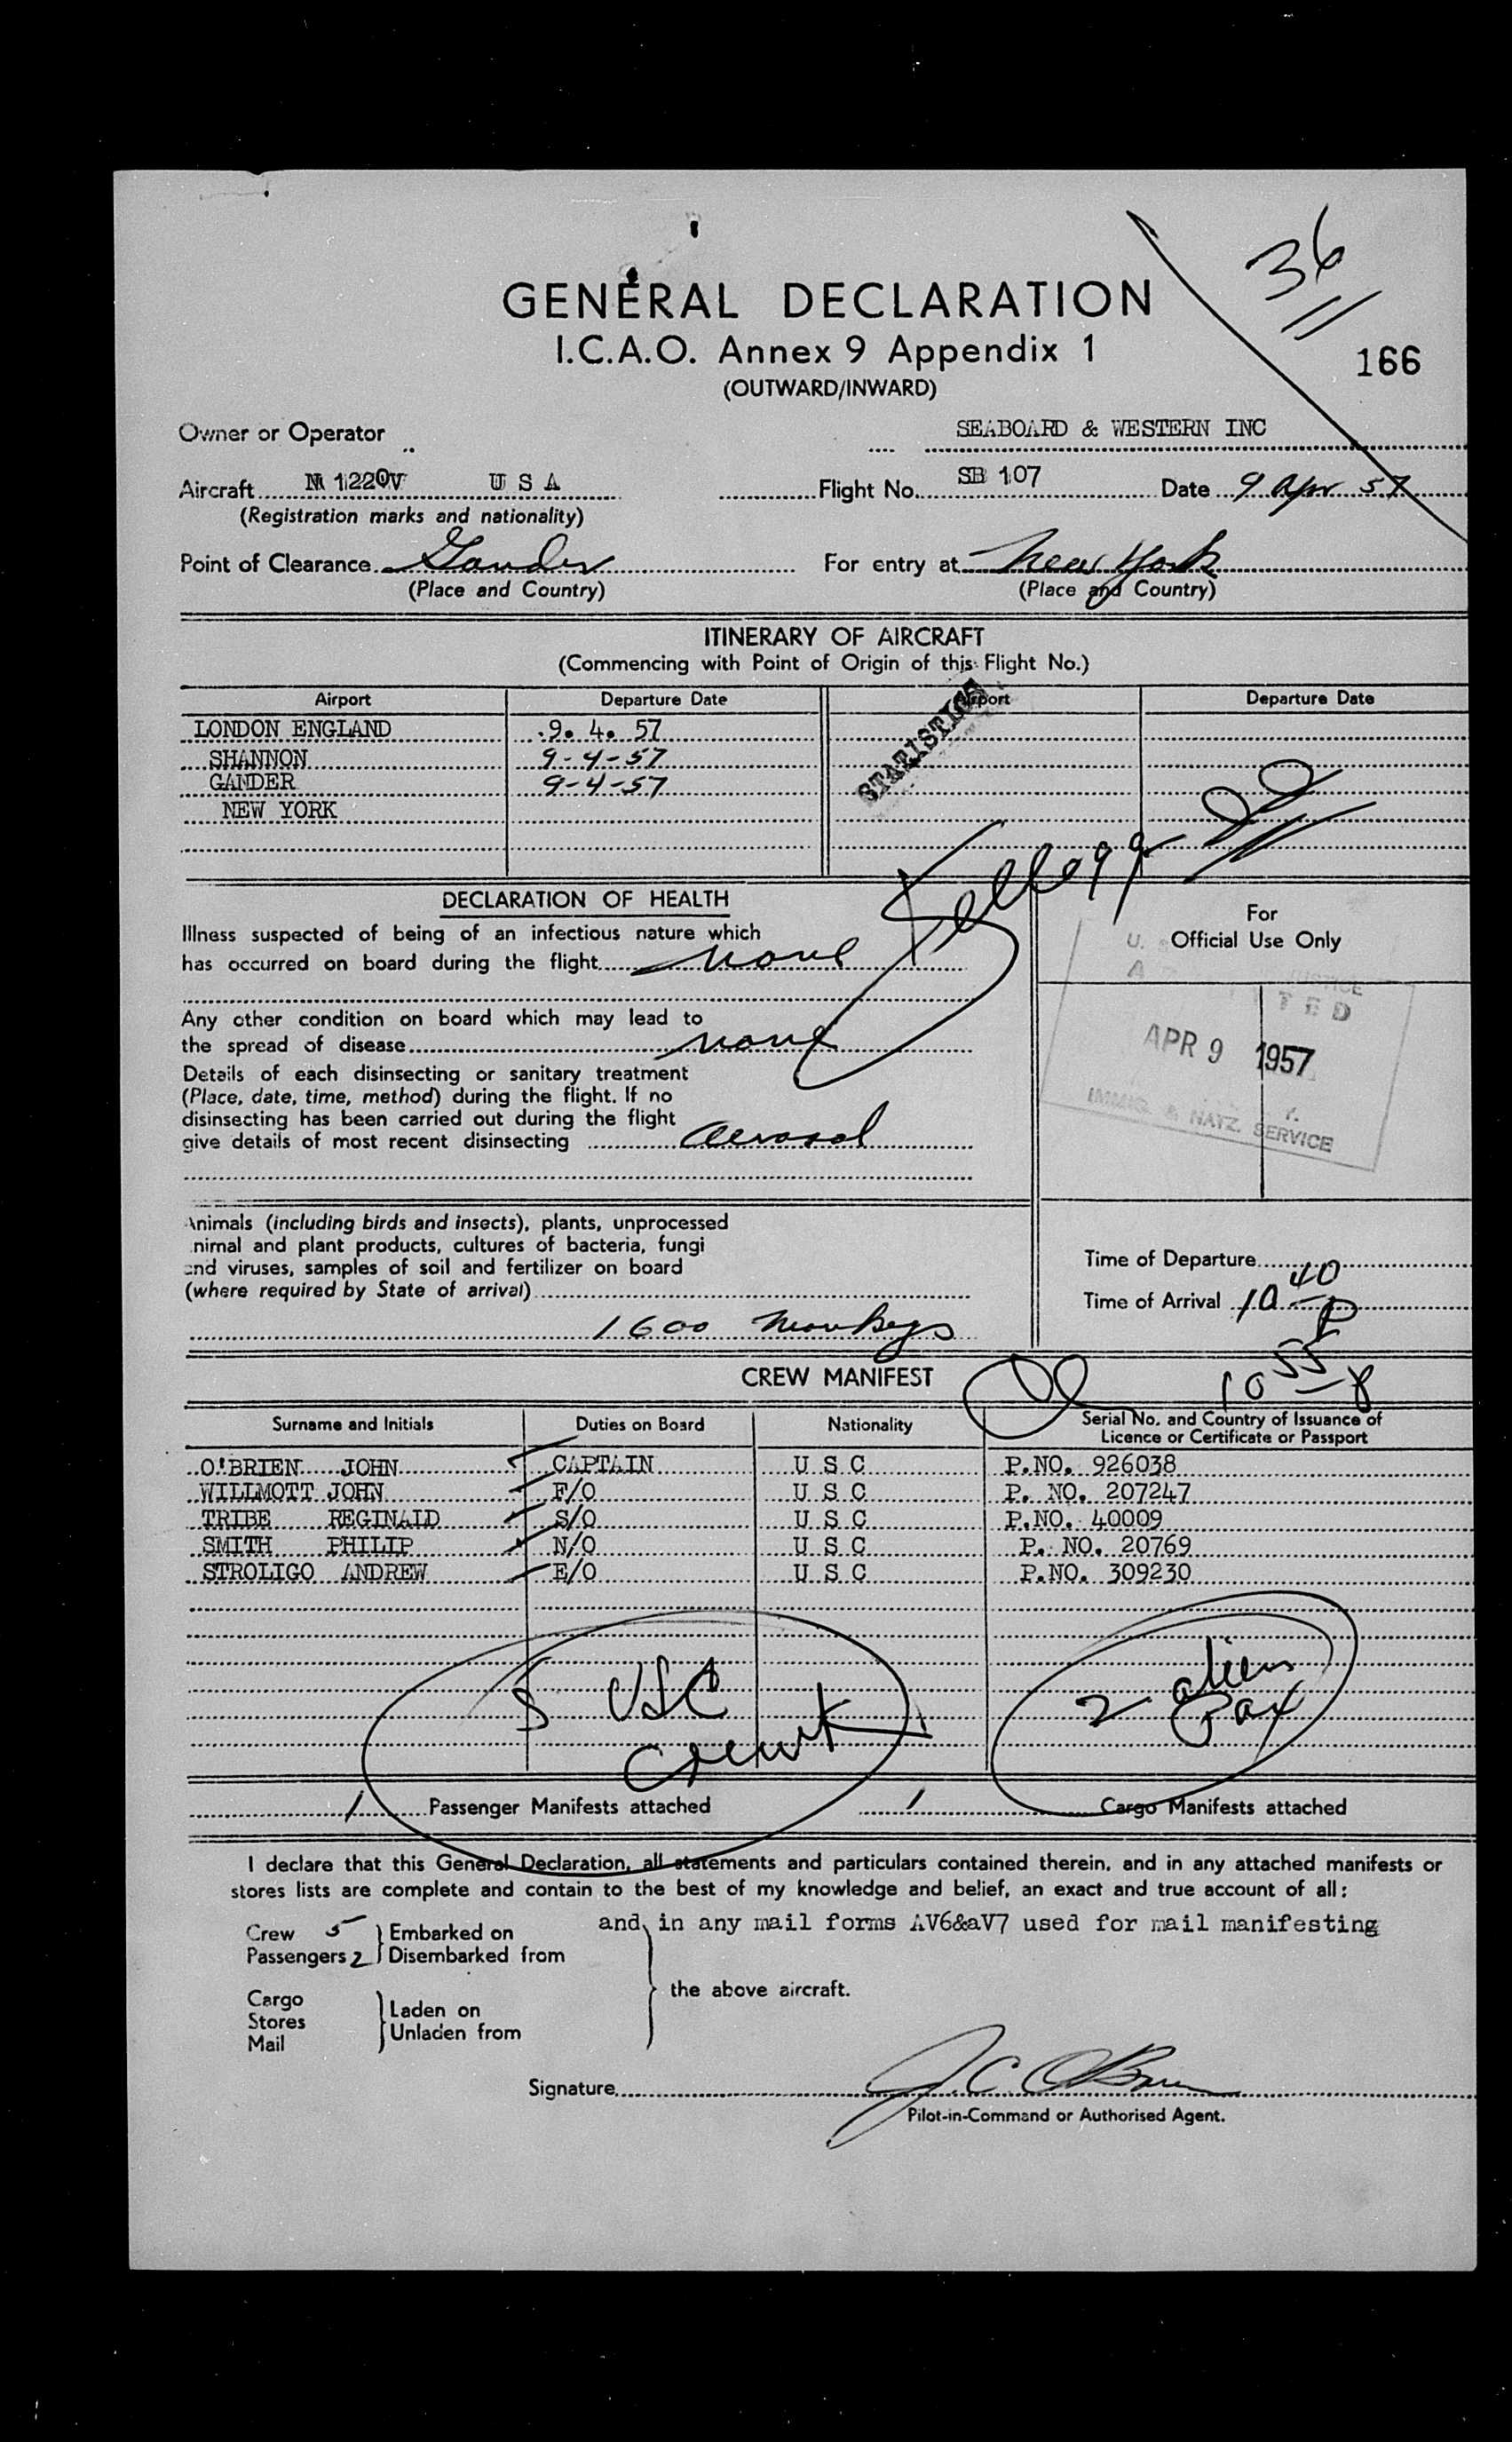 36
166
GENERAL DECLARATION
I.C.A.O. Annex 9 Appendix 1
(OUTWARD/INWARD)
Owner or Operator SEABOARD & WESTERN INC
Aircraft N 1220V U S A Flight No. SB 107 Date 9 Apr 57
(Registration marks and nationality)
Point of Clearance Gander For entry at New York
(Place and Country) (Place and Country)
ITINERARY OF AIRCRAFT
(Commencing with Point of Origin of this Flight No.)
Airport Departure Date Airport Departure Date
LONDON ENGLAND 9. 4. 57
SHANNON 9-4-57
GANDER 9-4-57
NEW YORK
STATISTICS
Kellogg
DECLARATION OF HEALTH
Illness suspected of being of an infectious nature which
has occurred on board during the flight none
Any other condition on board which may lead to
the spread of disease none
Details of each disinsecting or sanitary treatment
(Place, date, time, method) during the flight. If no
disinsecting has been carried out during the flight
give details of most recent disinsecting aerosol
For
Official Use Only
APR 9 1957
IMMIG. & NATZ. SERVICE
Animals (including birds and insects), plants, unprocessed
nimal and plant products, cultures of bacteria, fungi
and viruses, samples of soil and fertilizer on board
(where required by State of arrival)
1600 Monkeys
Time of Departure
Time of Arrival 10 40 P
10 55
CREW MANIFEST
Surname and Initials Duties on Board Nationality Serial No. and Country of Issuance of
Licence or Certificate or Passport
O'BRIEN JOHN CAPTAIN U S C P.NO. 926038
WILLMOTT JOHN F/O U S C P. NO. 207247
TRIBE REGINALD S/O U S C P.NO. 40009
SMITH PHILIP N/O U S C P. NO. 20769
STROLIGO ANDREW E/O U S C P.NO. 309230
5 USC
2 alien
Pax
1 Passenger Manifests attached 1 Cargo Manifests attached
I declare that this General Declaration, all statements and particulars contained therein, and in any attached manifests or
stores lists are complete and contain to the best of my knowledge and belief, an exact and true account of all:
and in any mail forms AV6&aV7 used for mail manifesting
Crew 5 Embarked on
Passengers 2 Disembarked from
the above aircraft.
Cargo
Stores
Mail
Laden on
Unladen from
Signature J.C. O'Brien
Pilot-in-Command or Authorised Agent.